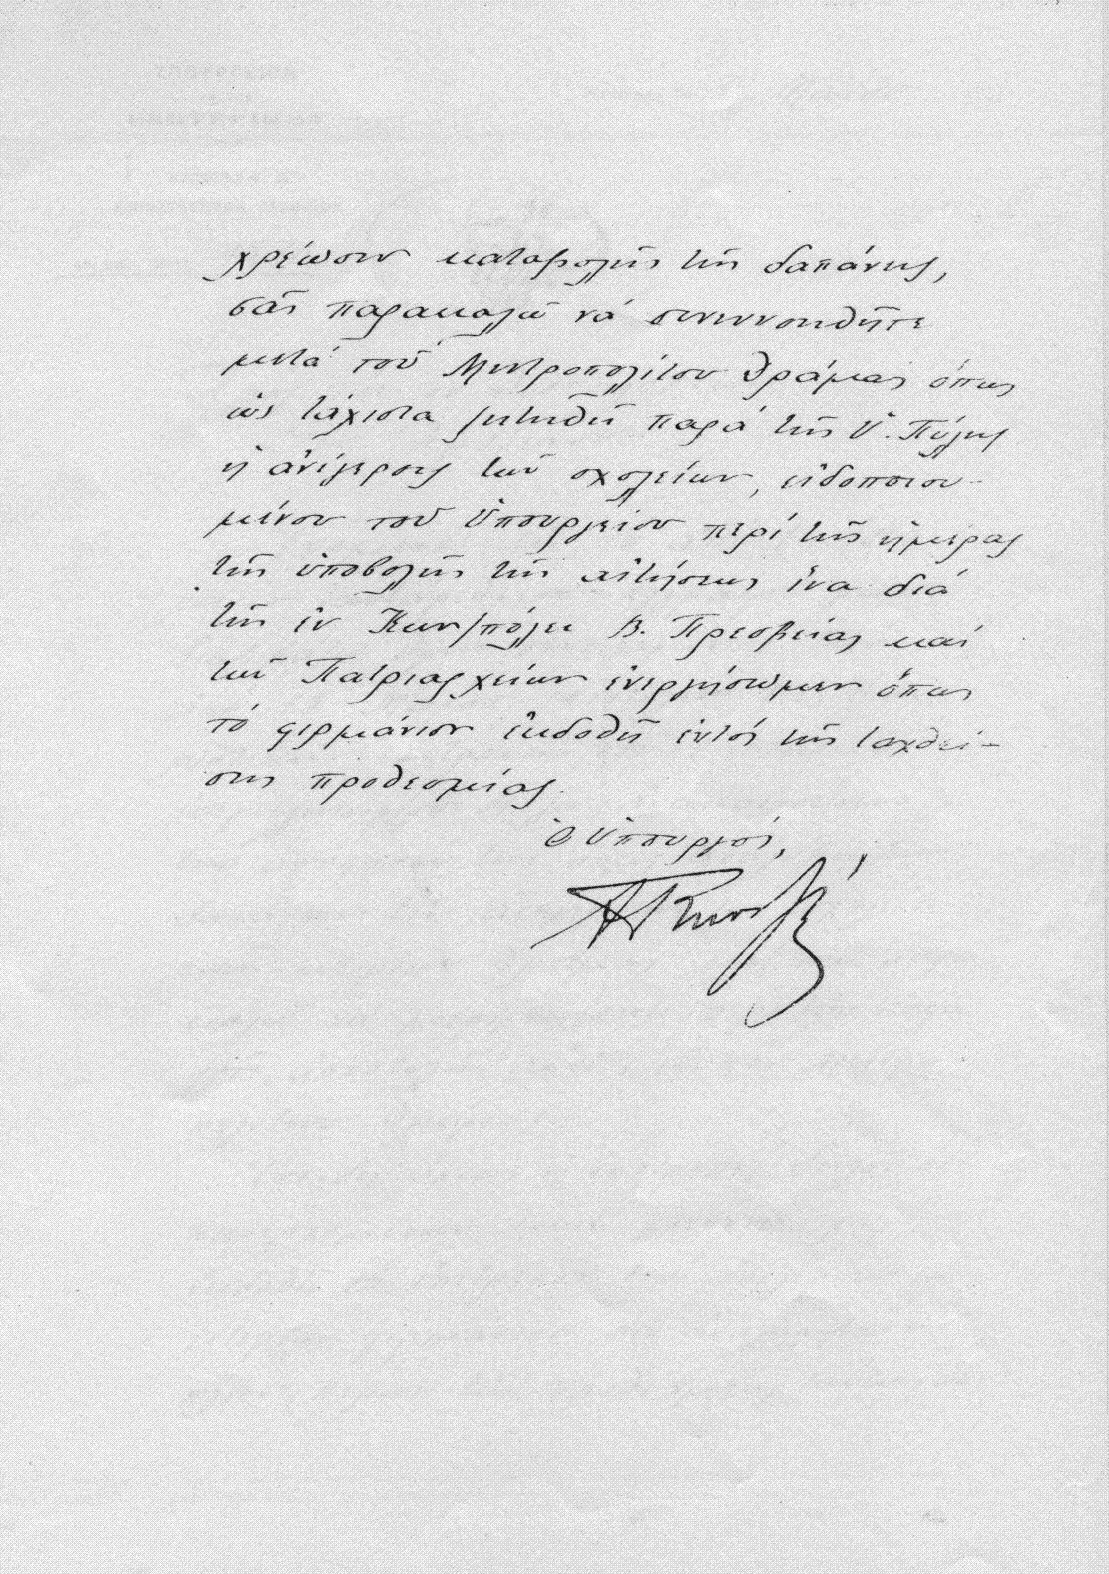 χρέωσιν καταβολῆς τῆς δαπάνης,
σᾶς παρακαλῶ νά συνεννοηθῆτε
μετά τοῦ Μητροπολίτου Δράμας ὅπως
ὡς τάχιστα ζητηθῆ παρά τῆς Ὑ. Πύλης
ἡ ἀνέγερσις τῶν σχολείων, εἰδοποιου-
μένου τοῦ Ὑπουργείου περί τῆς ἡμέρας
τῆς ὑποβολῆς τῆς αἰτήσεως ἵνα διά
τῆς ἐν Κων/πόλει Β. Πρεσβείας καί
τῶν Πατριαρχείων ἐνεργήσωμεν ὅπως
τό φιρμάνιον ἐκδοθῆ ἐντός τῆς ταχθεί-
σης προθεσμίας.
Ὁ Ὑπουργός,